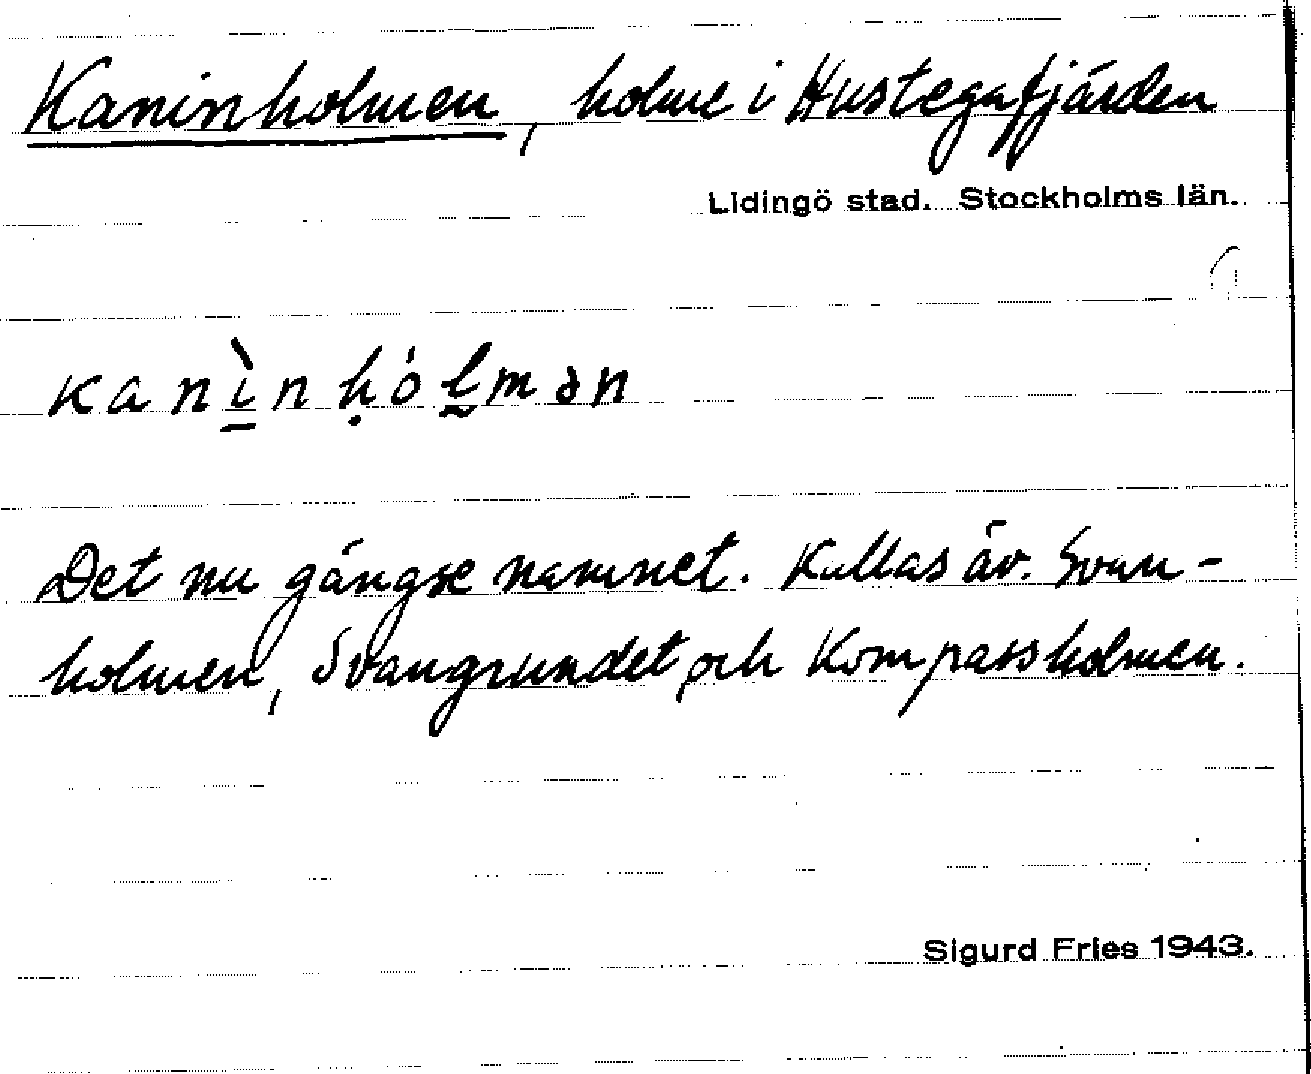 Kaninholmen, holme i Hustegafjärden
Lidingö stad. Stockholms län.
kanìnḥólmən
Det nu gängse namnet. Kallas äv. Svan-
holmen, Svangrundet och Kompassholmen.
Sigurd Fries 1943.